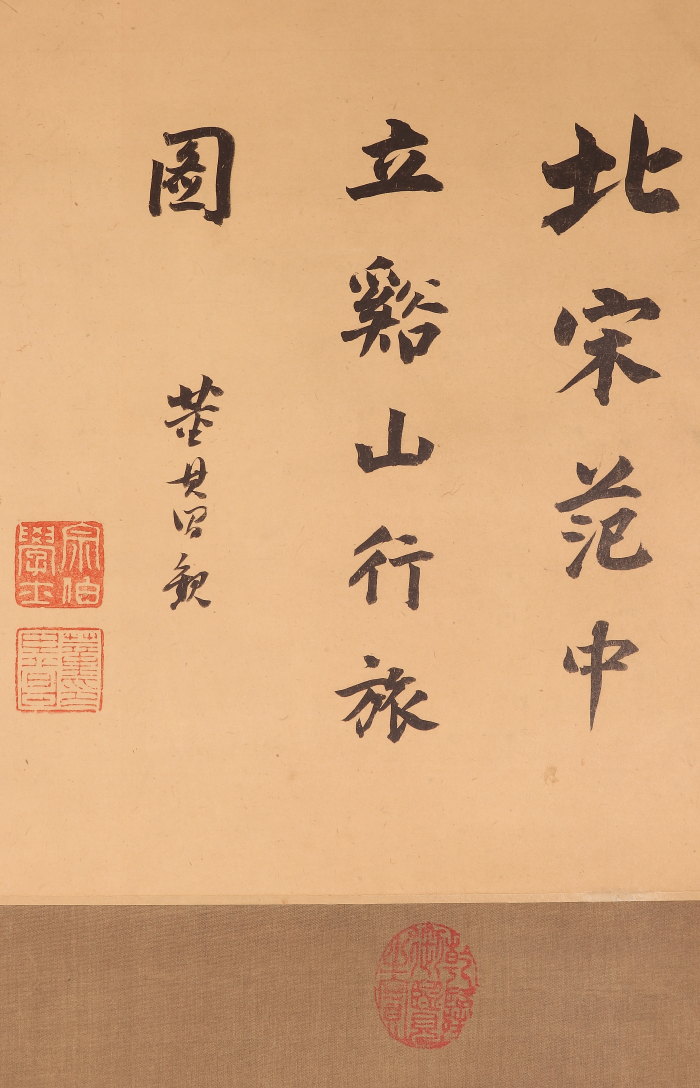 北宋范中
立谿山行旅
圖
董其昌觀
宗伯
學士
乾隆
御覽
之寶